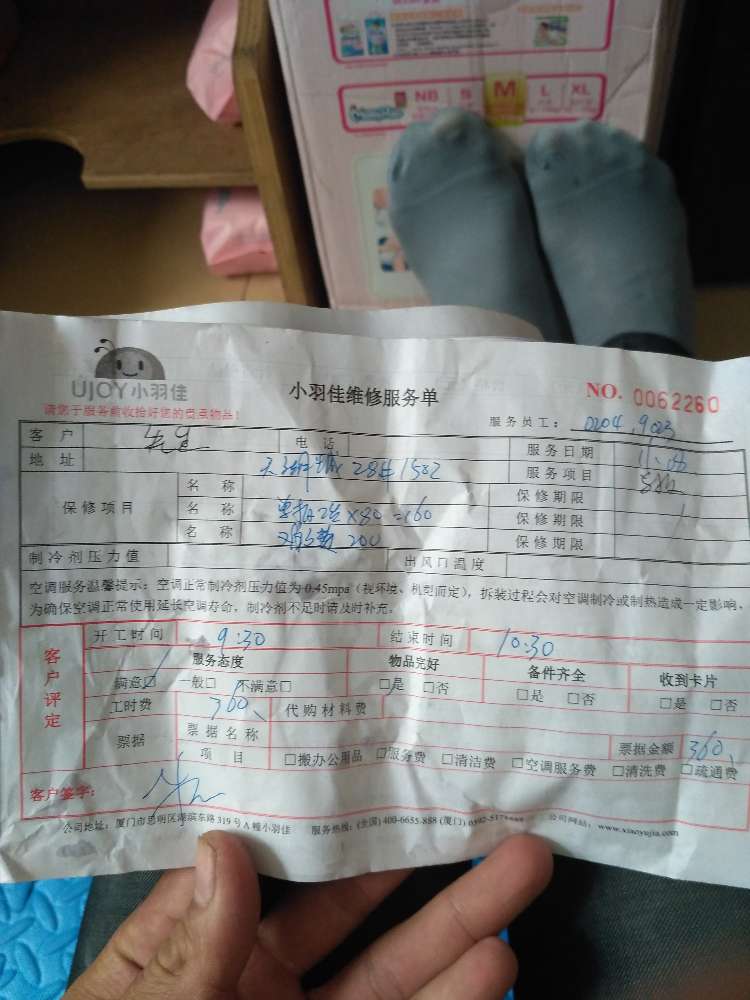 NB S M L XL
UJOY小羽佳
小羽佳维修服务单
NO. 0062260
请您于服务前收拾好您的贵重物品!
服务员工: 0204, 9023
客户 先生 电话 服务日期
地址 28# 1582 服务项目
保修项目 名称 保修期限
名称 ×80=160 保修期限
名称 200 保修期限
制冷剂压力值 出风口温度
空调服务温馨提示:空调正常制冷剂压力值为0.45mpa(视环境、机型而定),拆装过程会对空调制冷或制热造成一定影响,
为确保空调正常使用延长空调寿命,制冷剂不足时请及时补充。
客户评定
开工时间 9:30 结束时间 10:30
服务态度 物品完好 备件齐全 收到卡片
满意□ 一般□ 不满意□ □是 □否 □是 □否 □是 □否
工时费 360、 代购材料费
票据 票据名称 票据金额 360、
项目 □搬办公用品 □服务费 □清洁费 □空调服务费 □清洗费 □疏通费
客户签字:
公司地址:厦门市思明区湖滨东路319号A幢小羽佳 服务热线:(全国)400-6655-888 (厦门) 公司网站:www.xiaoyujia.com